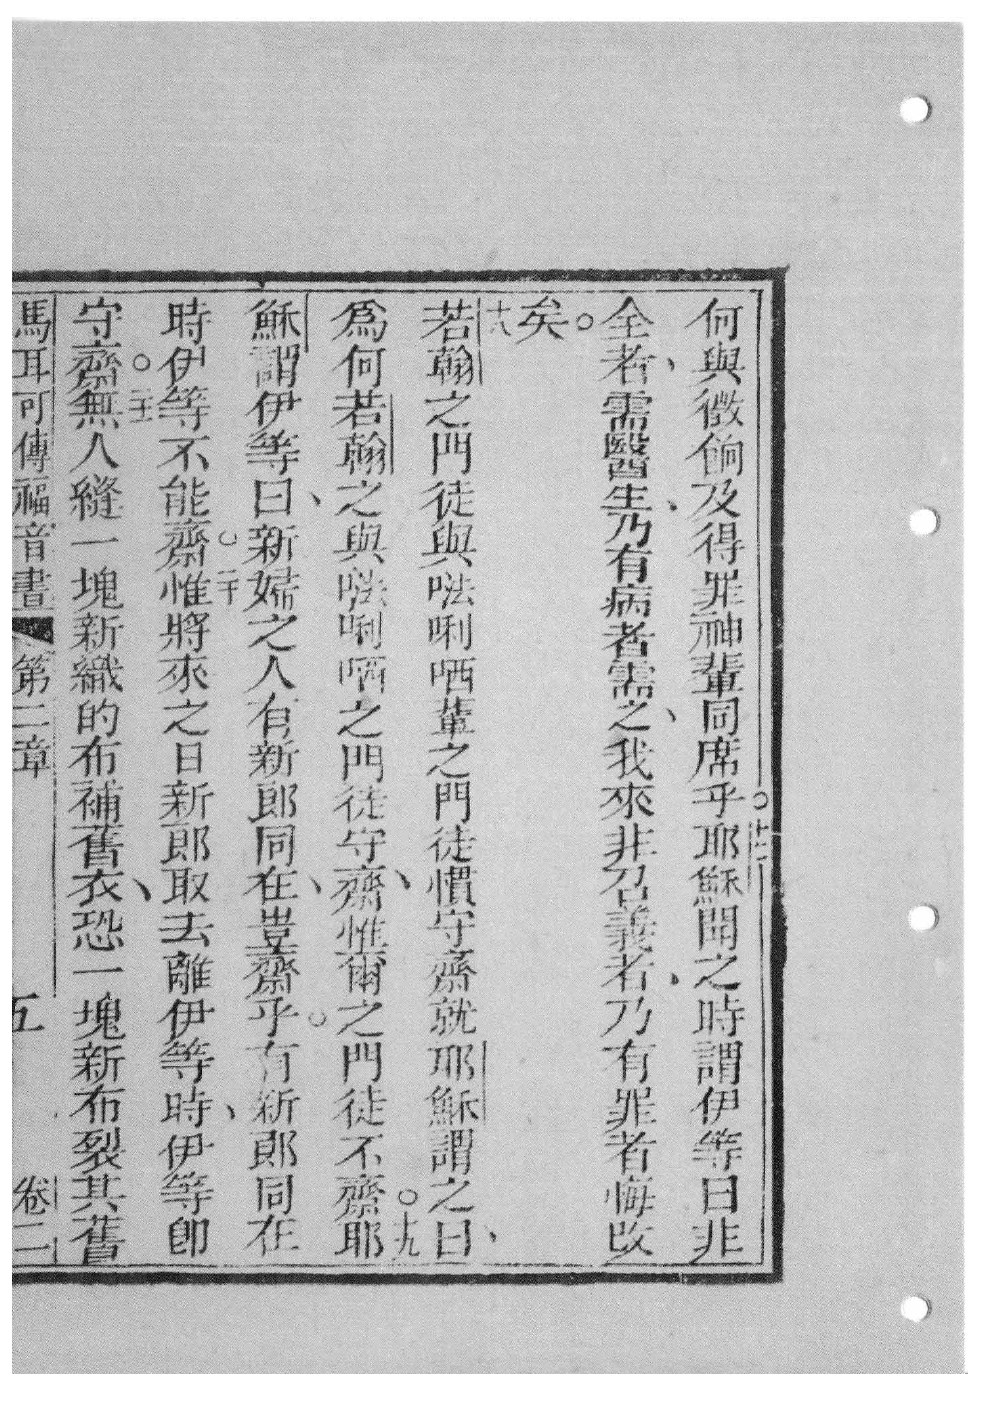 何與徵餉及得罪神輩同席乎。十七耶穌聞之時謂伊等曰非
全者、需醫生、乃有病者需之、我來非召義者、乃有罪者悔改
矣。
十八若翰之門徒與𠵽唎哂輩之門徒慣守齋就耶穌謂之曰、
爲何若翰之與𠵽唎哂之門徒守齋、惟爾之門徒不齋。十九耶
穌謂伊等曰、新婦之人有新郎同在、豈齋乎。有新郎同在
時伊等不能齋。二十惟將來之日新郎取去離伊等時、伊等卽
守齋。二十一無人縫一塊新織的布補舊衣、恐一塊新布裂其舊
馬耳可傳福音書 第二章 五 卷二